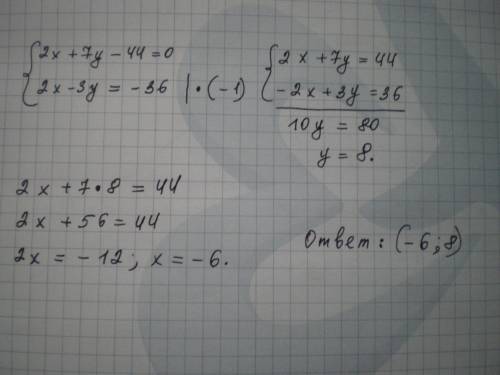 { 2x + 7y - 44 = 0
2x - 3y = - 36 | • (-1)
{ 2x + 7y = 44
- 2x + 3y = 36
10y = 80
y = 8.
2x + 7 • 8 = 44
2x + 56 = 44
2x = - 12 ; x = - 6.
Ответ : (- 6 ; 8)